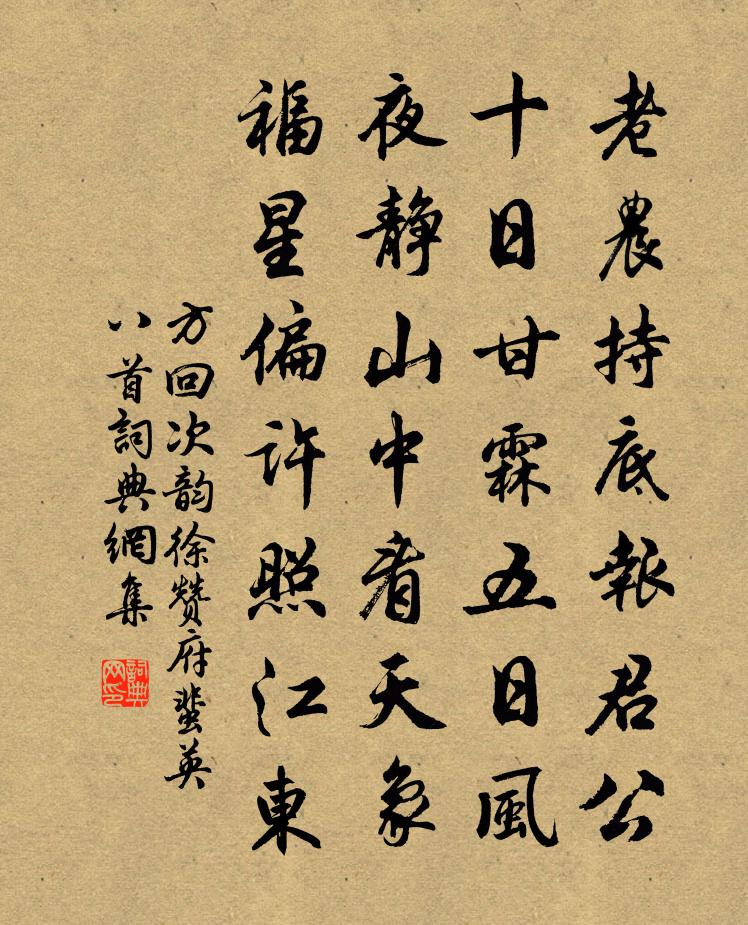 老農持底報君公
十日甘霖五日風
夜静山中看天象
福星偏許照江東
方回次韵徐赞府蜚英
八首詞典網集
詞典網印